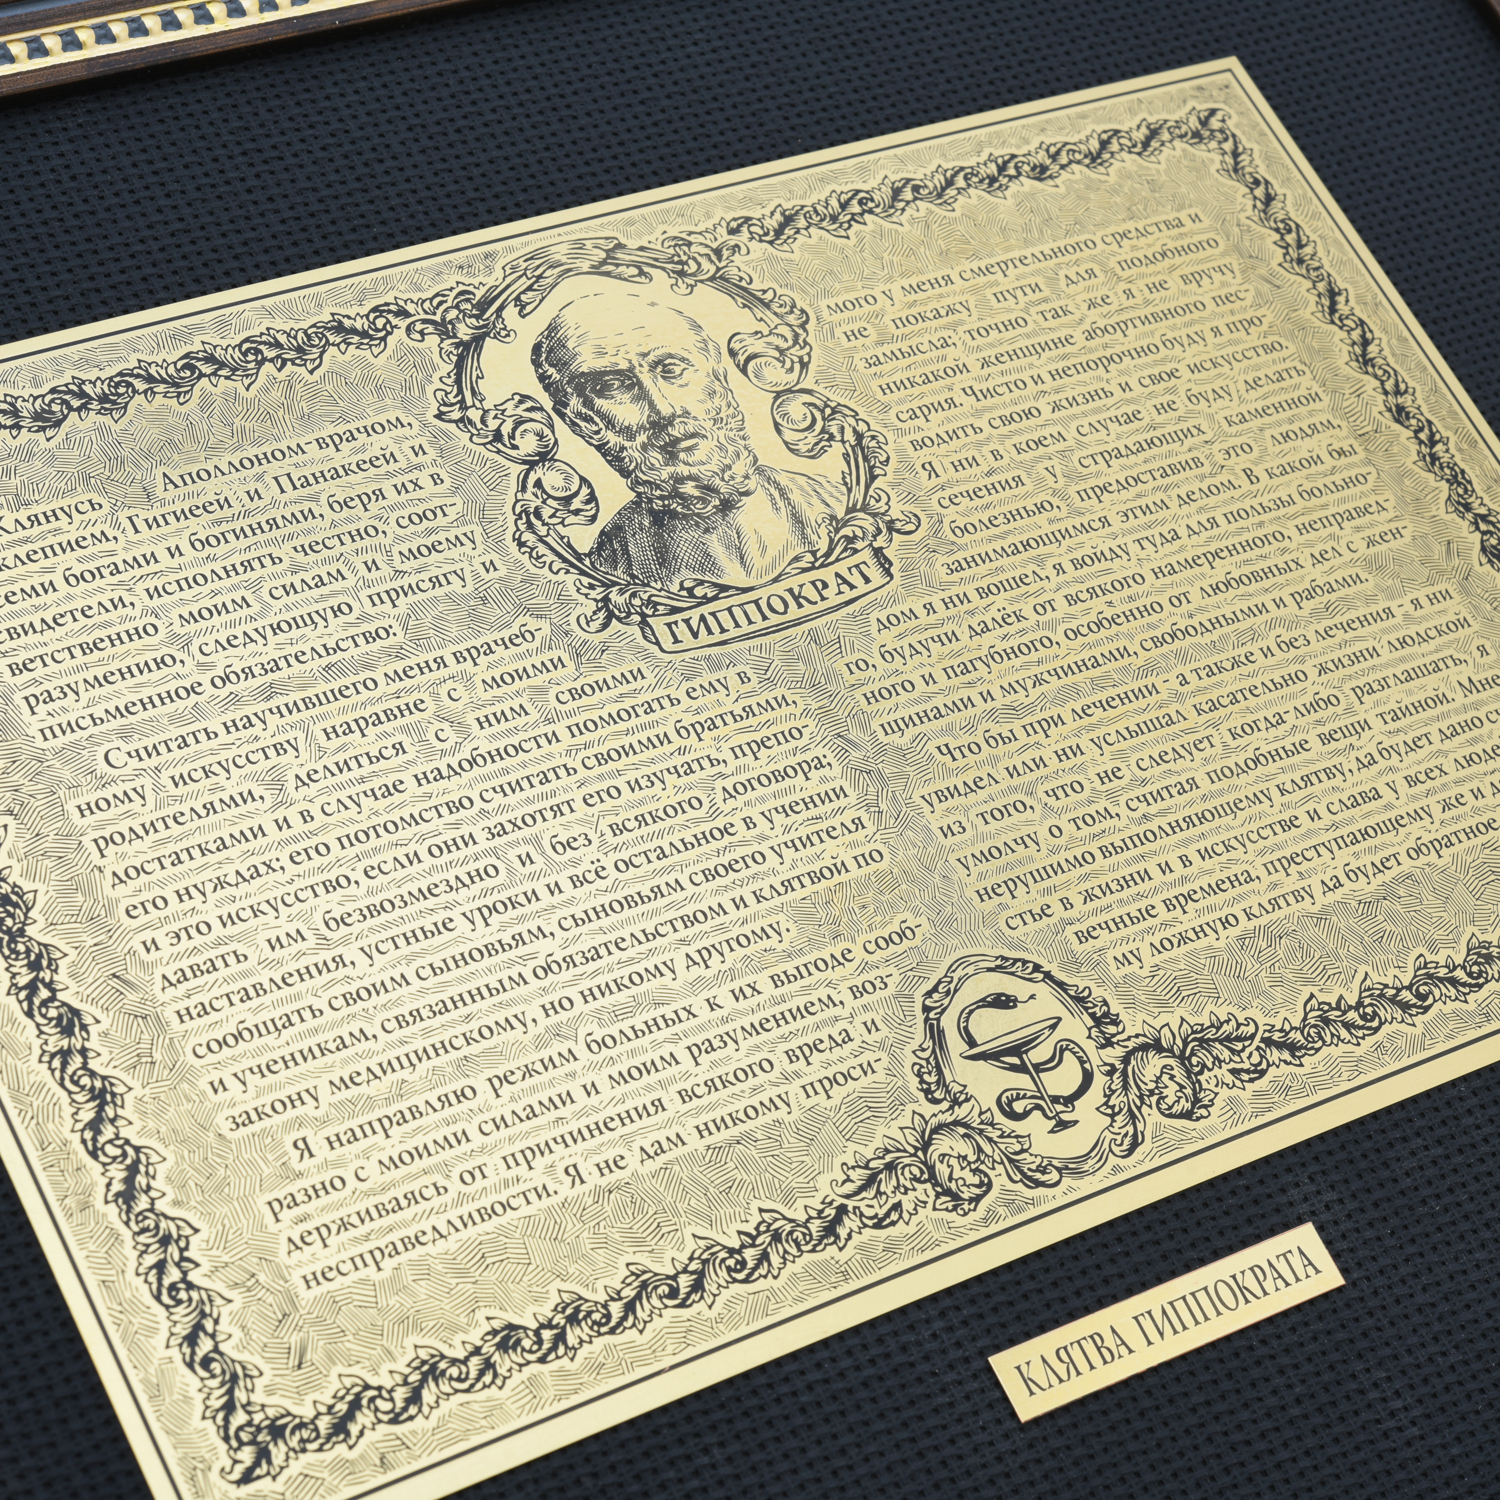 Клянусь Аполлоном-врачом,
клепием, Гигиеей и Панакеей и
семи богами и богинями, беря их в
свидетели, исполнять честно, соот-
ветственно моим силам и моему
разумению, следующую присягу и
письменное обязательство:
Считать научившего меня врачеб-
ному искусству наравне с моими
родителями, делиться с ним своими
достатками и в случае надобности помогать ему в
его нуждах; его потомство считать своими братьями,
и это искусство, если они захотят его изучать, препо-
давать им безвозмездно и без всякого договора;
наставления, устные уроки и всё остальное в учении
сообщать своим сыновьям, сыновьям своего учителя
и ученикам, связанным обязательством и клятвой по
закону медицинскому, но никому другому.
Я направляю режим больных к их выгоде сооб-
разно с моими силами и моим разумением, воз-
держиваясь от причинения всякого вреда и
несправедливости. Я не дам никому проси-
ГИППОКРАТ
мого у меня смертельного средства и
не покажу пути для подобного
замысла; точно так же я не вручу
никакой женщине абортивного пес-
сария. Чисто и непорочно буду я про-
водить свою жизнь и свое искусство.
Я ни в коем случае не буду делать
сечения у страдающих каменной
болезнью, предоставив это людям,
занимающимся этим делом. В какой бы
дом я ни вошел, я войду туда для пользы больно-
го, будучи далёк от всякого намеренного, неправед-
ного и пагубного, особенно от любовных дел с жен-
щинами и мужчинами, свободными и рабами.
Что бы при лечении - а также и без лечения - я ни
увидел или ни услышал касательно жизни людской
из того, что не следует когда-либо разглашать, я
умолчу о том, считая подобные вещи тайной. Мне,
нерушимо выполняющему клятву, да будет дано
стье в жизни и в искусстве и слава у всех
вечные времена, преступающему же и
му ложную клятву да будет обратное
КЛЯТВА ГИППОКРАТА